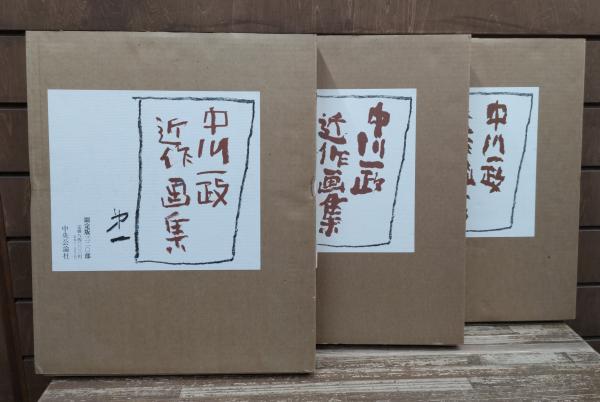 中川一政
近作画集
第一
限定版三二〇部
中央公論社
中川一政
近作画集
中川一政